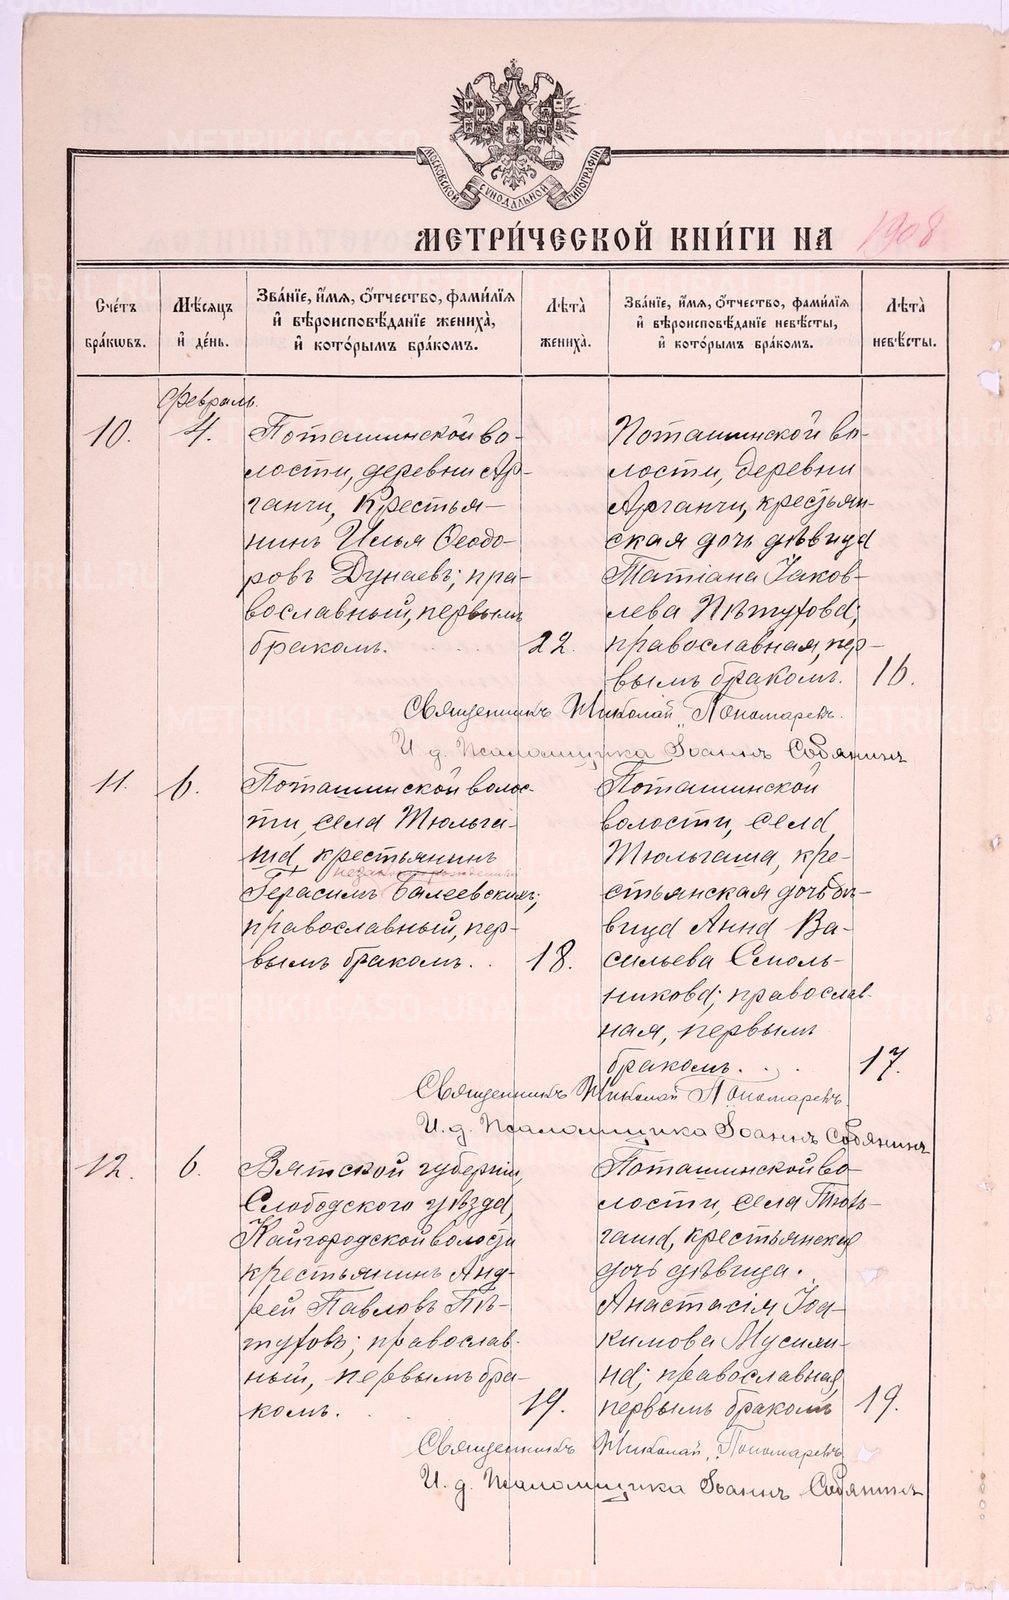 МОСКОВСКОЙ СѴНОДАЛЬНОЙ ТИПОГРАФІИ
МЕТРИ́ЧЕСКОЙ КНИ́ГИ НА 1908
Сче́тъ бра́кѡвъ.
Мѣ́сяцъ и҆ де́нь.
Зва́нїе, и҆́мя, ѻ҆́тчество, фами́лїя и҆ вѣроисповѣ́данїе жениха̀, и҆ кото́рымъ бра́комъ.
Лѣ́та жениха̀.
Зва́нїе, и҆́мя, ѻ҆́тчество, фами́лїя и҆ вѣроисповѣ́данїе невѣ́сты, и҆ кото́рымъ бра́комъ.
Лѣ́та невѣ́сты.
Февраль.
10.
4.
Поташинской во-
лости, деревни Ар-
ганчи, крестья-
нинъ Илья Ѳеодо-
ровъ Дунаевъ; пра-
вославный, первымъ
бракомъ.
22.
Поташинской во-
лости, деревни
Арганчи, крестьян-
ская дочь дѣвица
Татіана Іаков-
лева Пѣтухова;
православная, пер-
вымъ бракомъ.
16.
Священникъ Николай Пономаревъ.
И. д. псаломщика Іоаннъ Собянинъ
11.
6.
Поташинской волос-
ти, села Тюльга-
ша, крестьянинъ
незаконнорожденный
Герасимъ Балеевскихъ;
православный, пер-
вымъ бракомъ.
18.
Поташинской
волости, села
Тюльгаша, кре-
стьянская дочь дѣ-
вица Анна Ва-
сильева Смоль-
никова; православ-
ная, первымъ
бракомъ.
17.
Священникъ Николай Пономаревъ.
И. д. псаломщика Іоаннъ Собянинъ
12.
6.
Вятской губерніи,
Слободского уѣзда,
Кайгородской волости
крестьянинъ Анд-
рей Павловъ Пѣ-
туховъ; православ-
ный, первымъ бра-
комъ.
19.
Поташинской во-
лости, села Тюль-
гаша, крестьянская
дочь дѣвица
Анастасія Іоа-
кимова Мусихи-
на; православная,
первымъ бракомъ
19.
Священникъ Николай Пономаревъ
И. д. псаломщика Іоаннъ Собянинъ